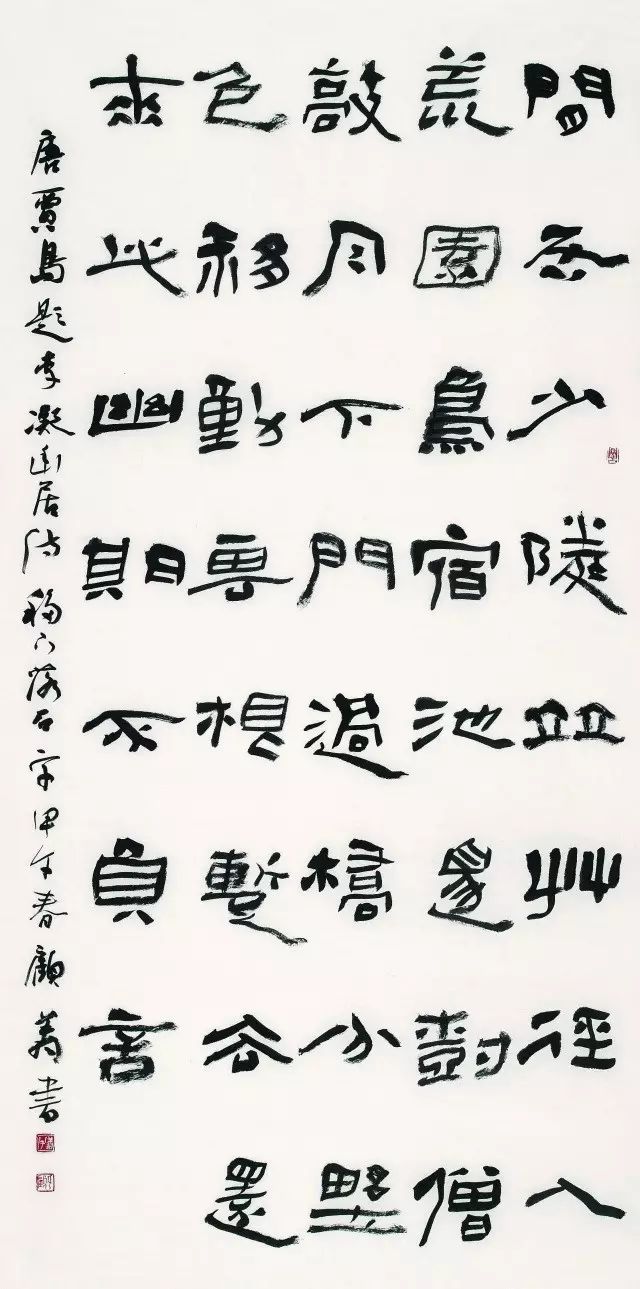 閒居少鄰並艸徑入
荒園鳥宿池邊樹僧
敲月下門過橋分野
色移動雲根暫去還
來此幽期不負言
唐賈島題李凝幽居詩 移下落石字 甲午春 顧 書